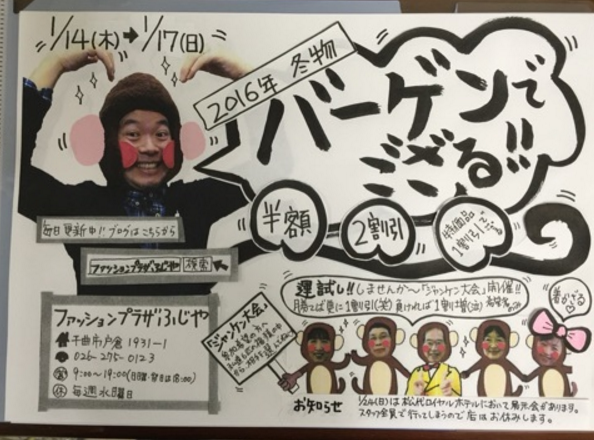 1/14(木)➡1/17(日)
2016年 冬物
バーゲンで
ござるッ!!
半額
2割引
特価品
1割引じゃ
毎日更新中!ブログはこちらから
ファッションプラザふじや 検索
運試し!!しませんか〜「ジャンケン大会」開催!!
勝てば更に1割引(笑)負ければ1割増(泣)
「ジャンケン大会」
ファッションプラザふじや
千曲市戸倉1931-1
026-275-0123
営 9:00〜19:00
休 毎週水曜日
お知らせ
1/24(日)は松代ロイヤルホテルにおいて展示会があります。
スタッフ全員で行ってしまうので店はお休みします。